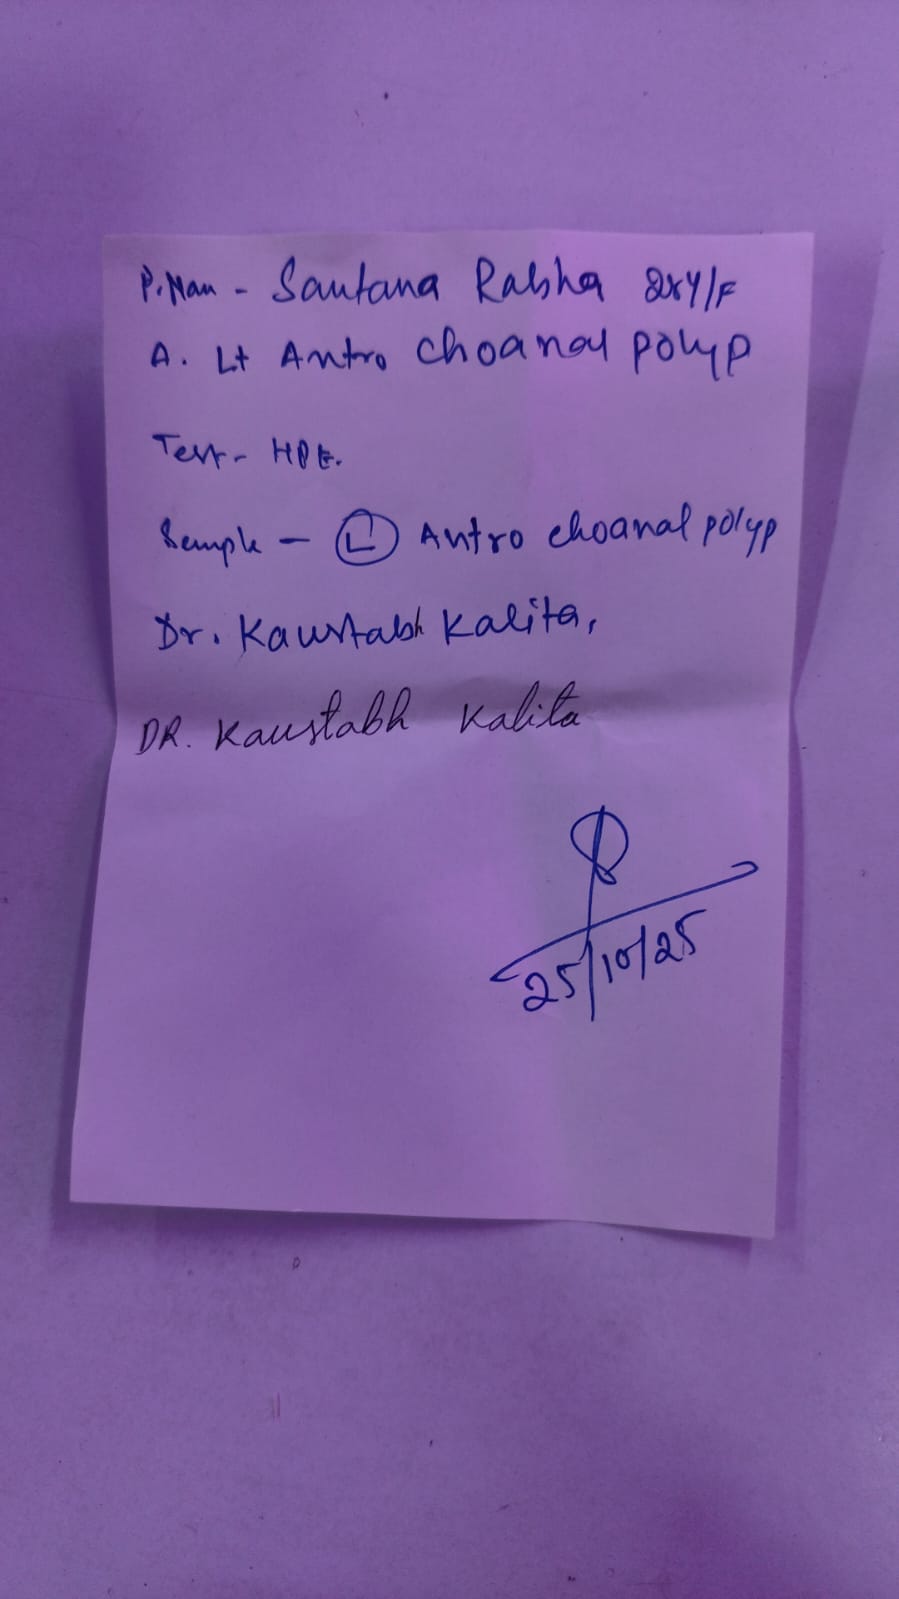 P. Nam - Santana Rabha 28Y/F
A. Lt Antro choanal polyp
Test - HPE.
Sample - Ⓛ Antro choanal polyp
Dr. Kaustabh Kalita,
DR. Kaustabh Kalita
25/10/25